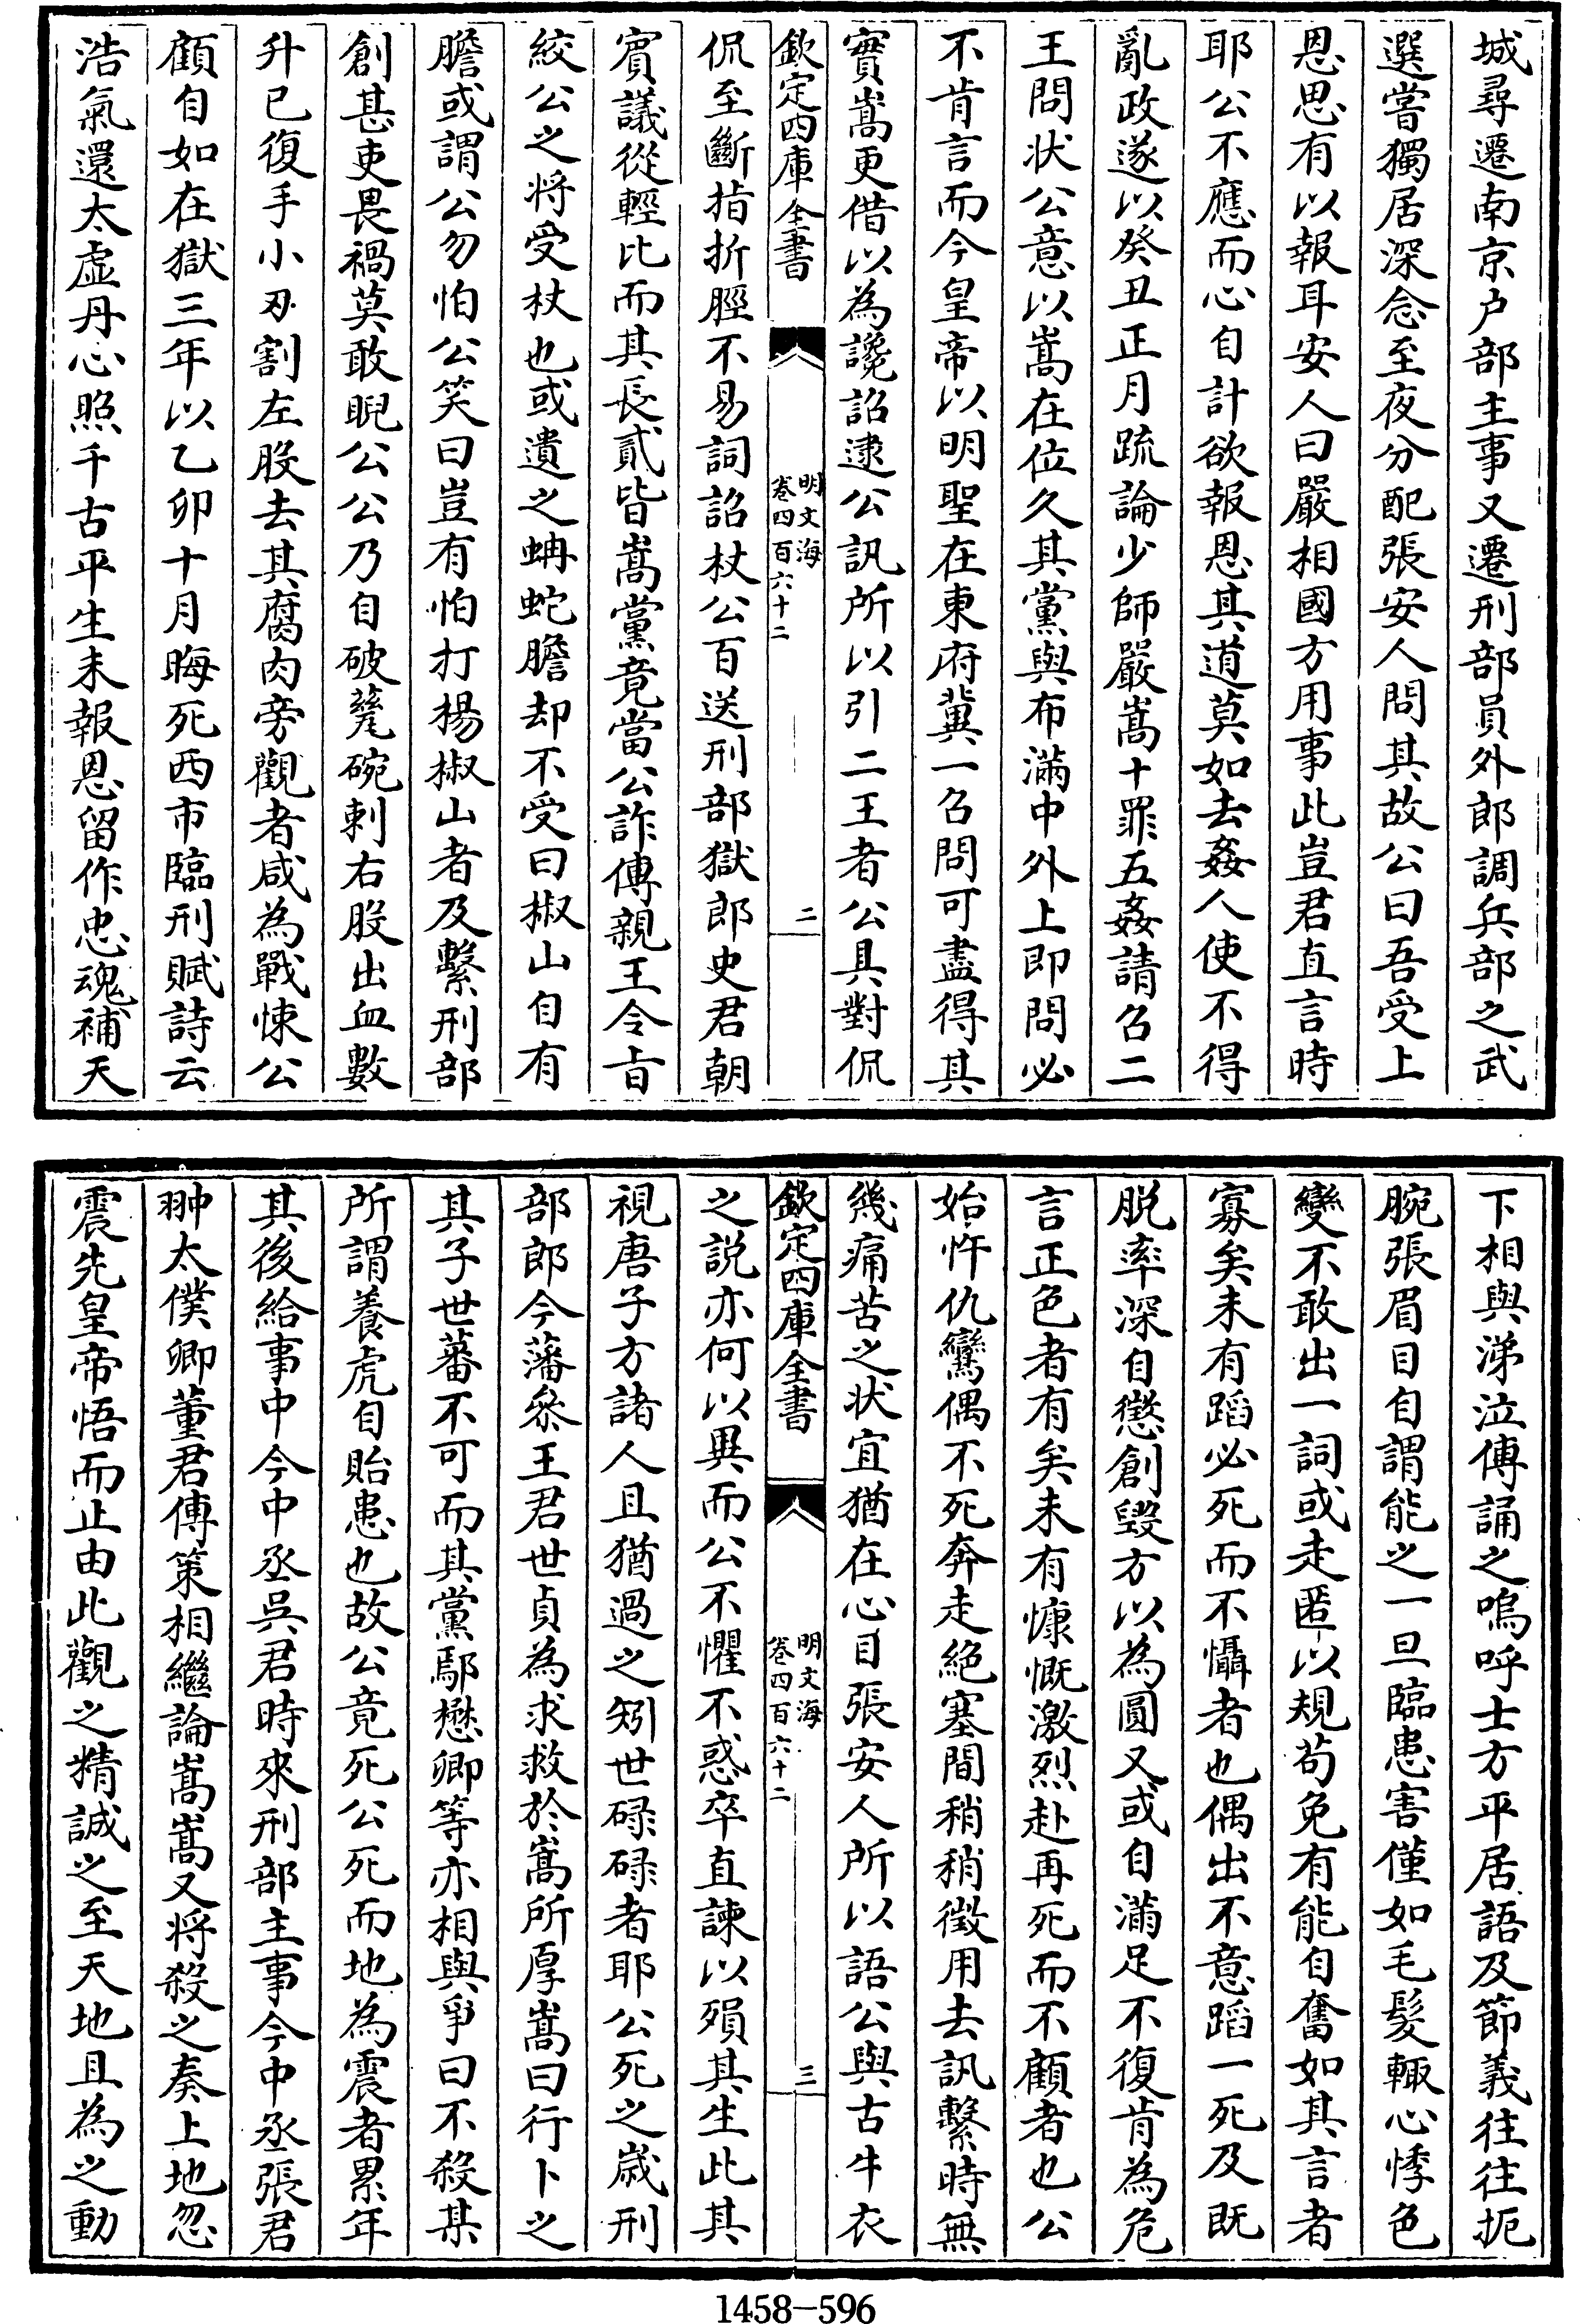 城尋遷南京户部主事又遷刑部員外郎調兵部之武
選嘗獨居深念至夜分配張安人問其故公曰吾受上
恩思有以報耳安人曰嚴相國方用事此豈君直言時
耶公不應而心自計欲報恩其道莫如去姦人使不得
亂政遂以癸丑正月疏論少師嚴嵩十罪五姦請召二
王問状公意以嵩在位久其黨與布滿中外上即問必
不肯言而今皇帝以明聖在東府冀一召問可盡得其
實嵩更借以為讒詔逮公訊所以引二王者公具對侃
欽定四庫全書
明文海
卷四百六十二
二
侃至斷指折脛不易詞詔杖公百送刑部獄郎史君朝
賓議從輕比而其長貳皆嵩黨竟當公詐傳親王令旨
絞公之将受杖也或遺之蚺蛇膽却不受曰椒山自有
膽或謂公勿怕公笑曰豈有怕打楊椒山者及繫刑部
創甚吏畏禍莫敢睨公公乃自破甆碗刺右股出血數
升已復手小刄割左股去其腐肉旁觀者咸為戰悚公
顧自如在獄三年以乙卯十月晦死西市臨刑賦詩云
浩氣還太虚丹心照千古平生未報恩留作忠魂補天
下相與涕泣傳誦之嗚呼士方平居語及節義往往扼
腕張眉目自謂能之一旦臨患害僅如毛髮輒心悸色
變不敢出一詞或走匿以規茍免有能自奮如其言者
寡矣未有蹈必死而不懾者也偶出不意蹈一死及既
脱率深自懲創毁方以為圓又或自滿足不復肯為危
言正色者有矣未有慷慨激烈赴再死而不顧者也公
始忤仇鸞偶不死奔走絶塞間稍稍徴用去訊繫時無
幾痛苦之状宜猶在心目張安人所以語公與古牛衣
欽定四庫全書
明文海
卷四百六十二
三
之説亦何以異而公不懼不惑卒直諫以殞其生此其
視唐子方諸人且猶過之矧世碌碌者耶公死之歲刑
部郎今藩叅王君世貞為求救於嵩所厚嵩曰行卜之
其子世蕃不可而其黨鄢懋卿等亦相與爭曰不殺某
所謂養虎自貽患也故公竟死公死而地為震者累年
其後給事中今中丞吳君時來刑部主事今中丞張君
翀太僕卿董君傳策相繼論嵩嵩又将殺之奏上地忽
震先皇帝悟而止由此觀之精誠之至天地且為之動
1458-596